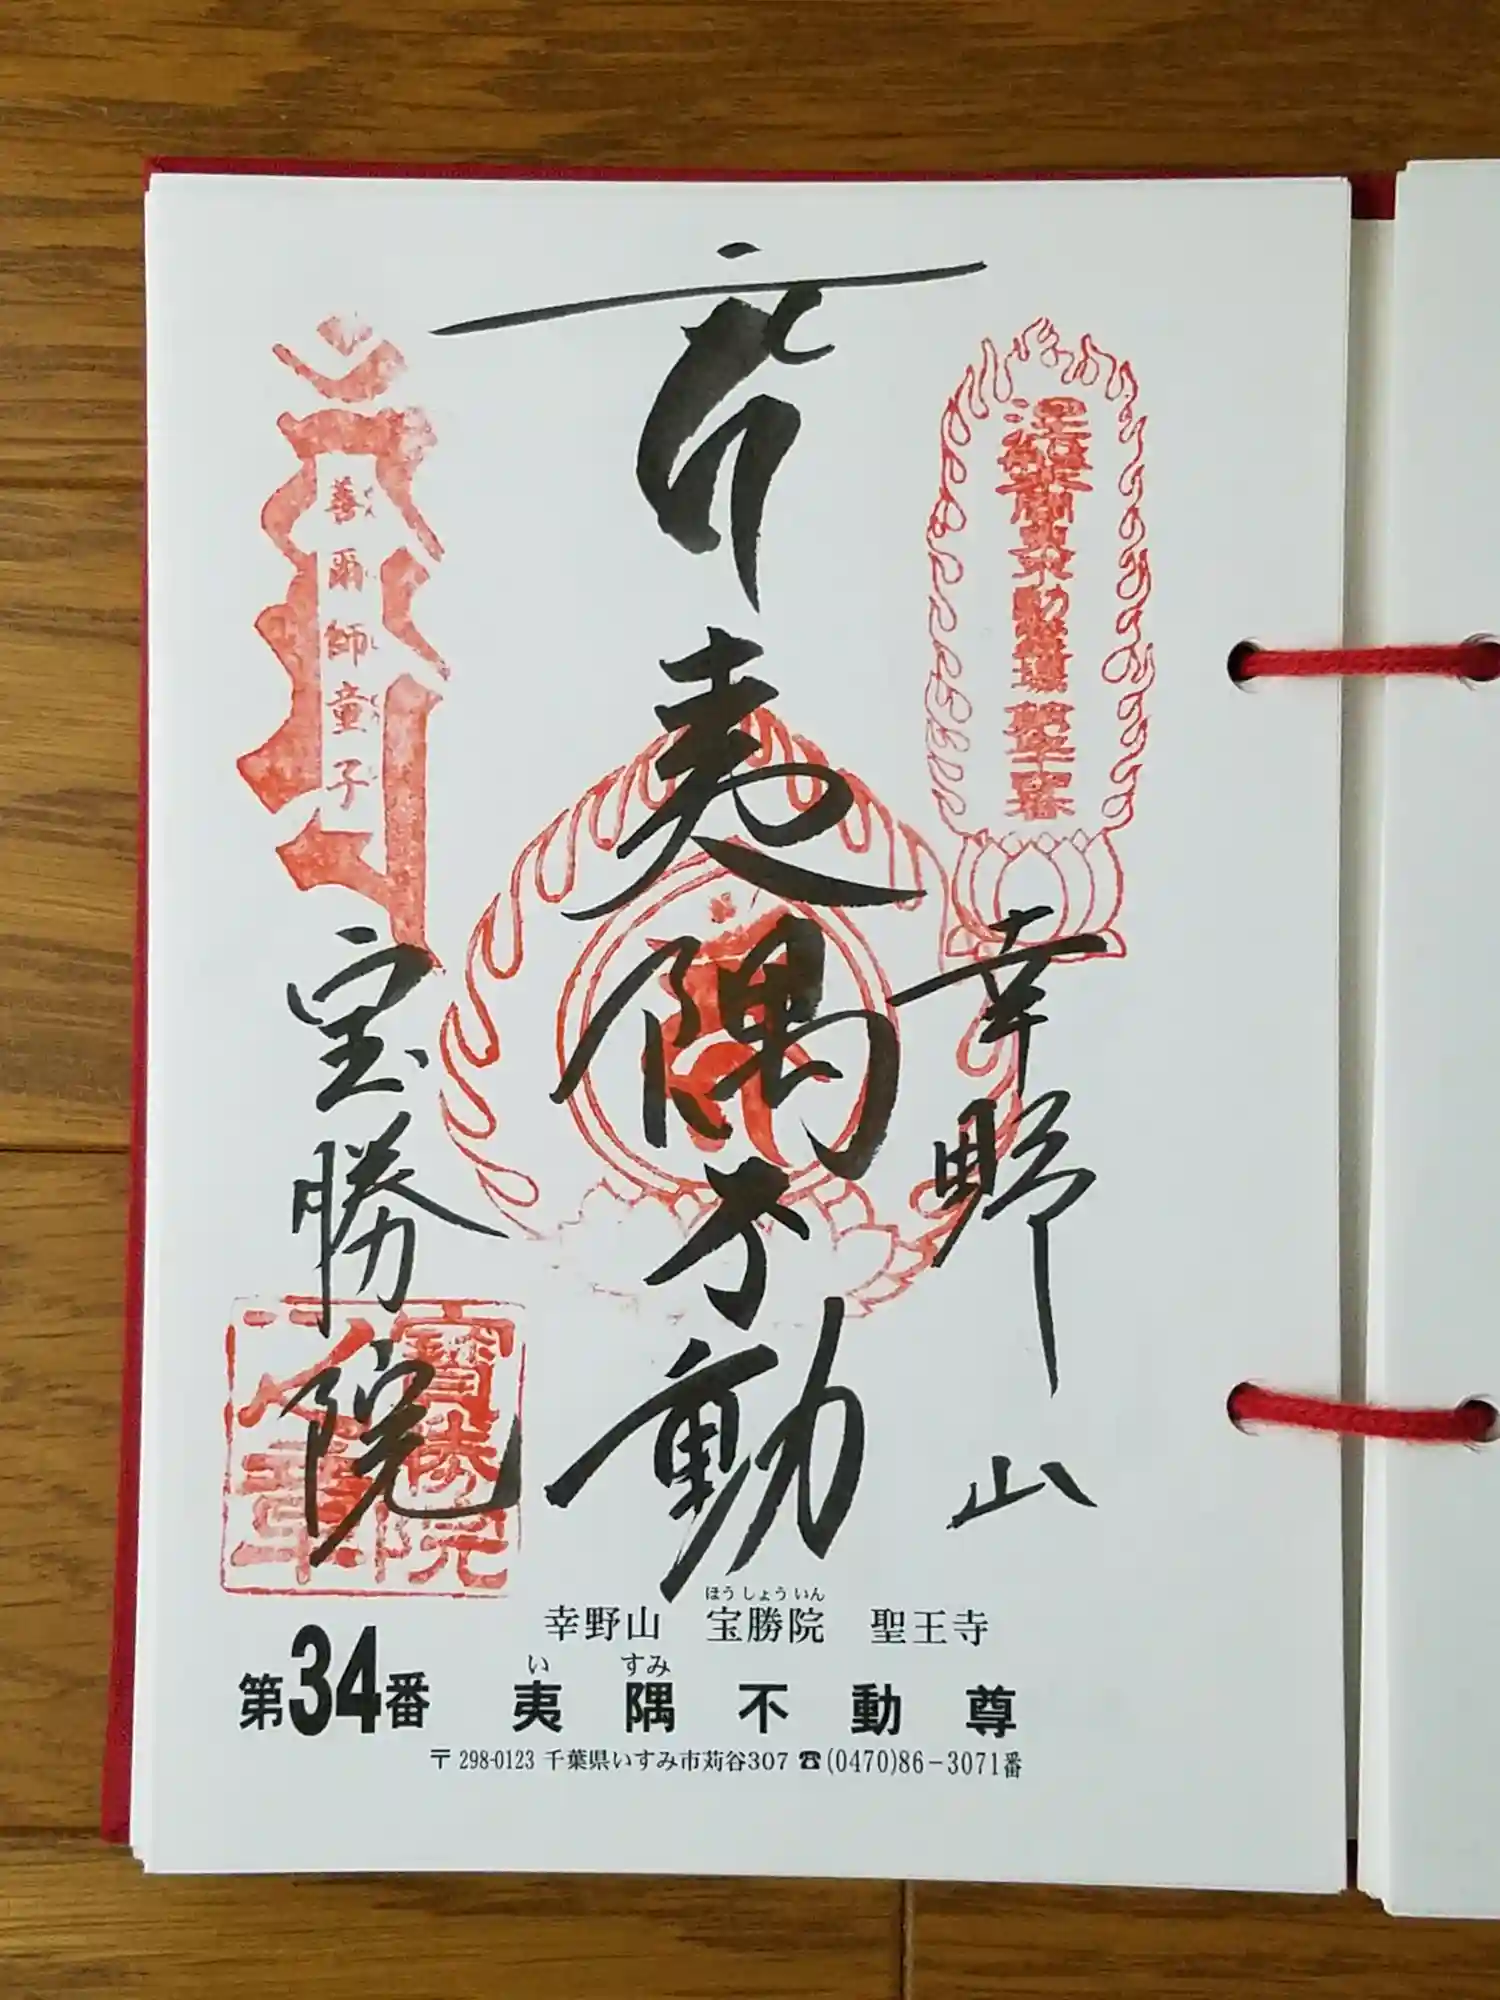 夷隅不動
幸野山
善爾師童子
宝勝院
幸野山 宝勝院 聖王寺
ほうしょういん
第34番 夷隅不動尊
い すみ
〒298-0123 千葉県いすみ市苅谷307 ☎(0470)86-3071番